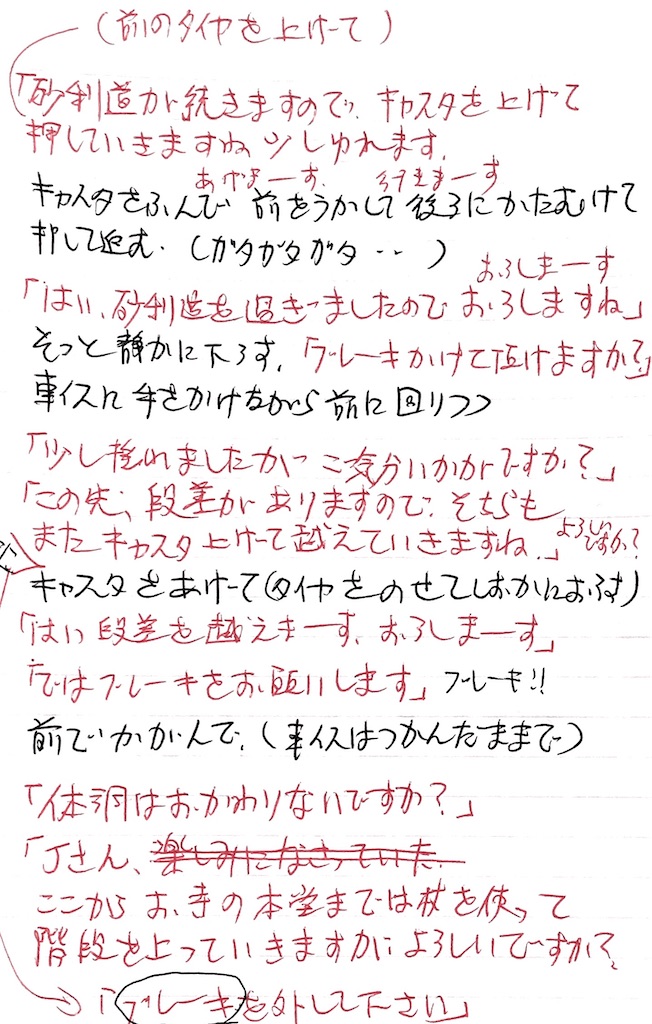 (前のタイヤを上げーて)
「砂利道が続きますので、キャスタを上げて
押していきますね 少しゆれます。
あげまーす。 行きまーす
キャスタをふんで 前をうかして後ろにかたむけて
押して進む。(ガタガタガタ・・)
おろしまーす
「はい、砂利道を過ぎましたので おろしますね」
そっと静かに下ろす。「ブレーキかけて頂けますか?」
車イスに手をかけながら前に回りつつ
「少し揺れましたが ご気分いかがですか?」
「この先、段差がありますので そちらも
またキャスタ上げて越えていきますね。」よろしいですか?
キャスタをあげーて(タイヤをのせてしずかにおろす)
「はい 段差を越えまーす、おろしまーす」
「ではブレーキをお願いします」 ブレーキ!!
前でかがんで、(車イスはつかんだままで)
「体調はおかわりないですか?」
「Jさん、楽しみになさっていた
ここから お寺の本堂までは杖を使って
階段を上っていきますが よろしいですか?
「ブレーキを外して下さい」